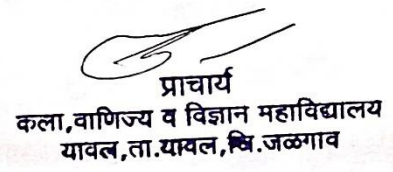 प्राचार्य
कला,वाणिज्य व विज्ञान महाविद्यालय
यावल,ता.यावल,जि.जळगाव